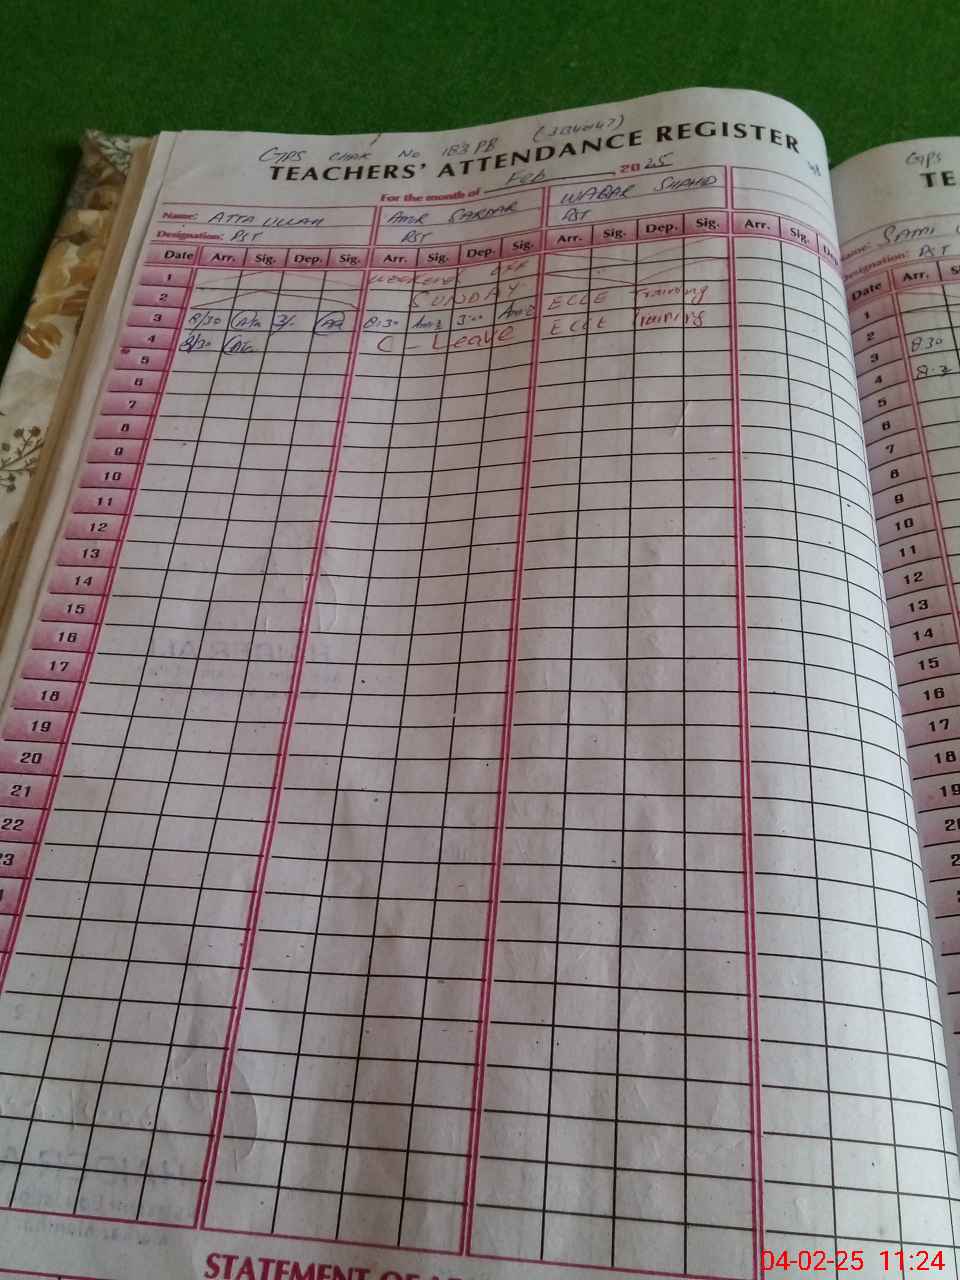 GPS CHAK No 183 PB
TEACHERS' ATTENDANCE REGISTER
For the month of Feb 2025
Name: ATTA ULLAH AMIR SARDAR WAQAR SHAHD
Designation: PST PST PST
Date Arr. Sig. Dep. Sig. Arr. Sig. Dep. Sig. Arr. Sig. Dep. Sig. Arr. Sig.
1 WEEKEND OFF
2 SUNDAY ECCE Training
3 8/30 8:30 3:00 ECCE Training
4 8/30 C - Leave
5
6
7
8
9
10
11
12
13
14
15
16
17
18
19
20
21
22
23
STATEMENT OF
GPS
TE
Name: SAMI
Designation: PST
Date Arr. Sig
1
2
3 830
4
5
6
7
8
9
10
11
12
13
14
15
16
17
18
19
04-02-25 11:24